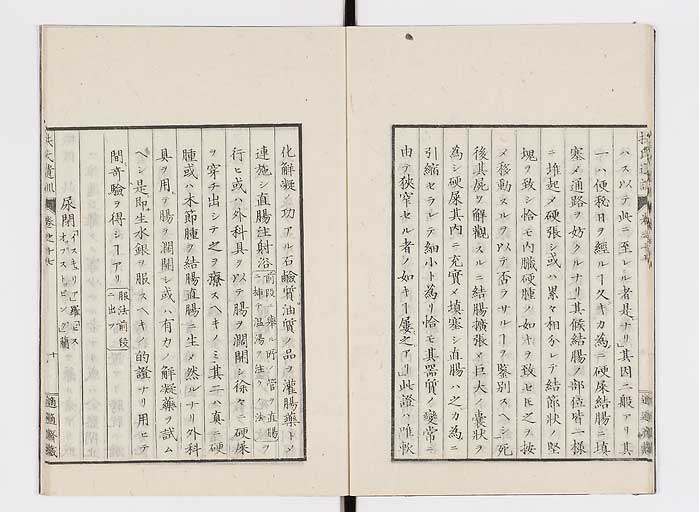 ハス以テ此ニ至レル者是ナリ其因二般アリ其
一ハ便秘日ヲ經ル丁久キカ為ニ硬屎結腸ニ填
塞メ通路ヲ妨クルナリ其候結腸ノ部位皆一樣
ニ堆起メ硬張シ或ハ累々相分レテ結節狀ノ堅
塊ヲ致シ恰モ内臓硬腫ノ如キヲ致セ𪜈之ヲ按
メ移動スルヲ以テ否ラサルーヲ鑒別スヘシ死
後其屍ヲ解觀スルニ結腸擴張メ巨大ノ囊狀ヲ
為シ硬屎其内ニ充實メ填塞シ直腸ハ之カ為ニ
引縮セラレテ細小ト為リ恰モ其器質ノ變常ニ
由テ狹窄セル者ノ如キー屢之アリ此證ハ唯軟
化解凝ノ功アル石鹼質油質ノ品ヲ灌腸藥トメ
連施シ直腸注射浴
行ヒ或ハ外科具ヲ以テ腸ヲ濶開シ徐々ニ硬屎
ヲ穿チ出シテ之ヲ療スヘキノミ其二ハ真ニ硬
腫或ハ木節腫ヲ結腸直腸ニ生メ然ルナリ外科
具ヲ用テ腸ヲ濶開シ或ハ有力ノ解凝藥ヲ試ム
ヘシ是即生水銀ヲ服スヘキノ的證ナリ用ヒテ
間奇驗ヲ得シーアリ
服法前段
ニ出ツ
尿閉
扶氏遺訓
卷之十七
適適齋藏